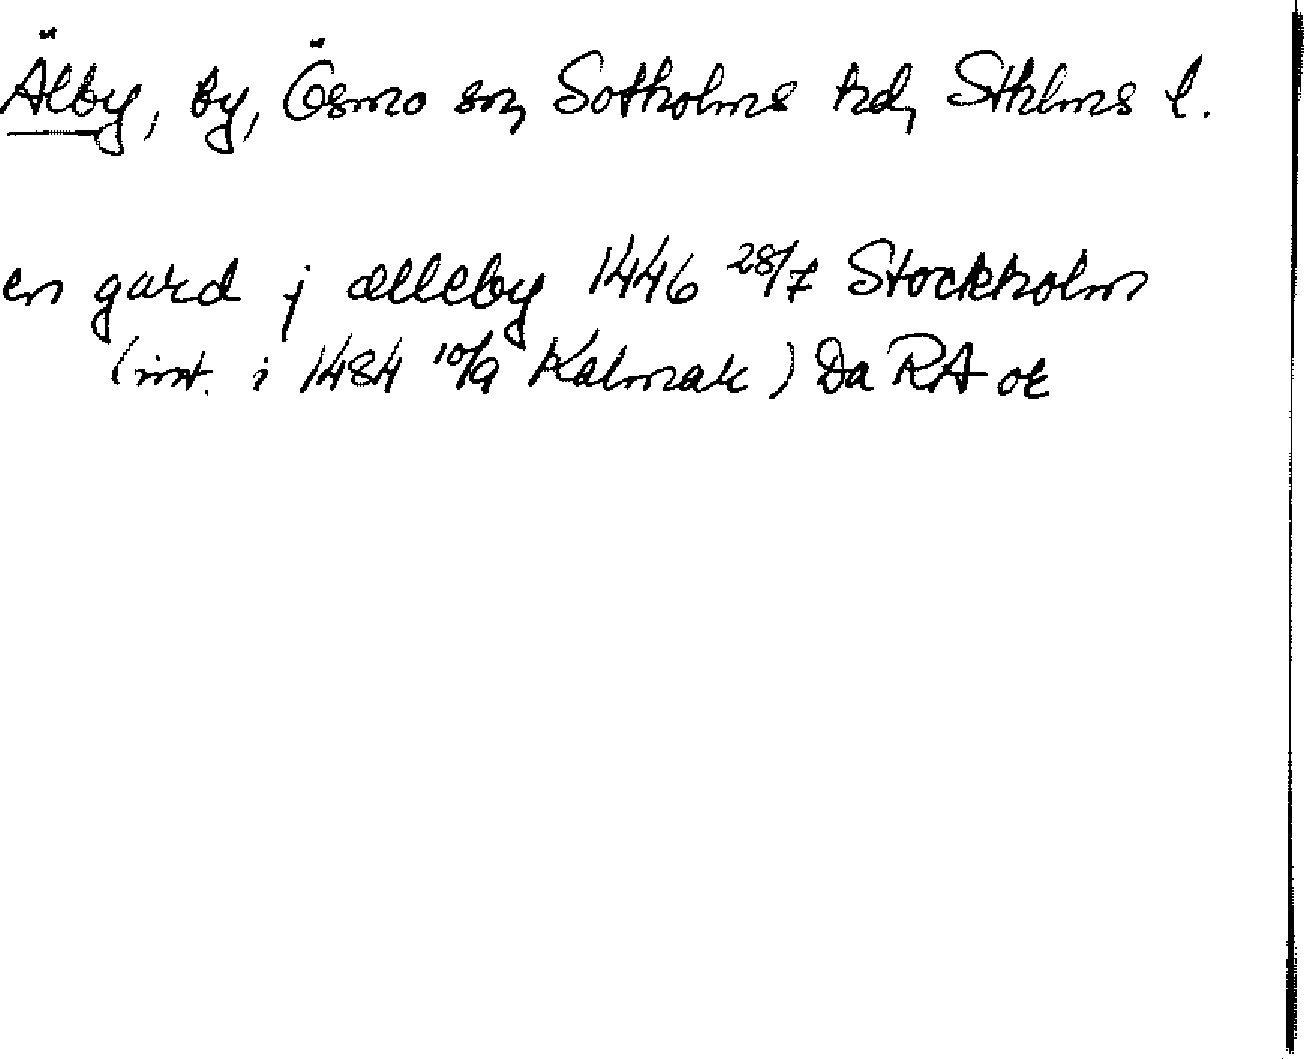 Älby, by, Ösmo sn, Sotholms hd, Sthlms l.
en gard j ælleby 1446 28/7 Stockholm
(int. i 1484 10/9 Kalmar) Da RA or